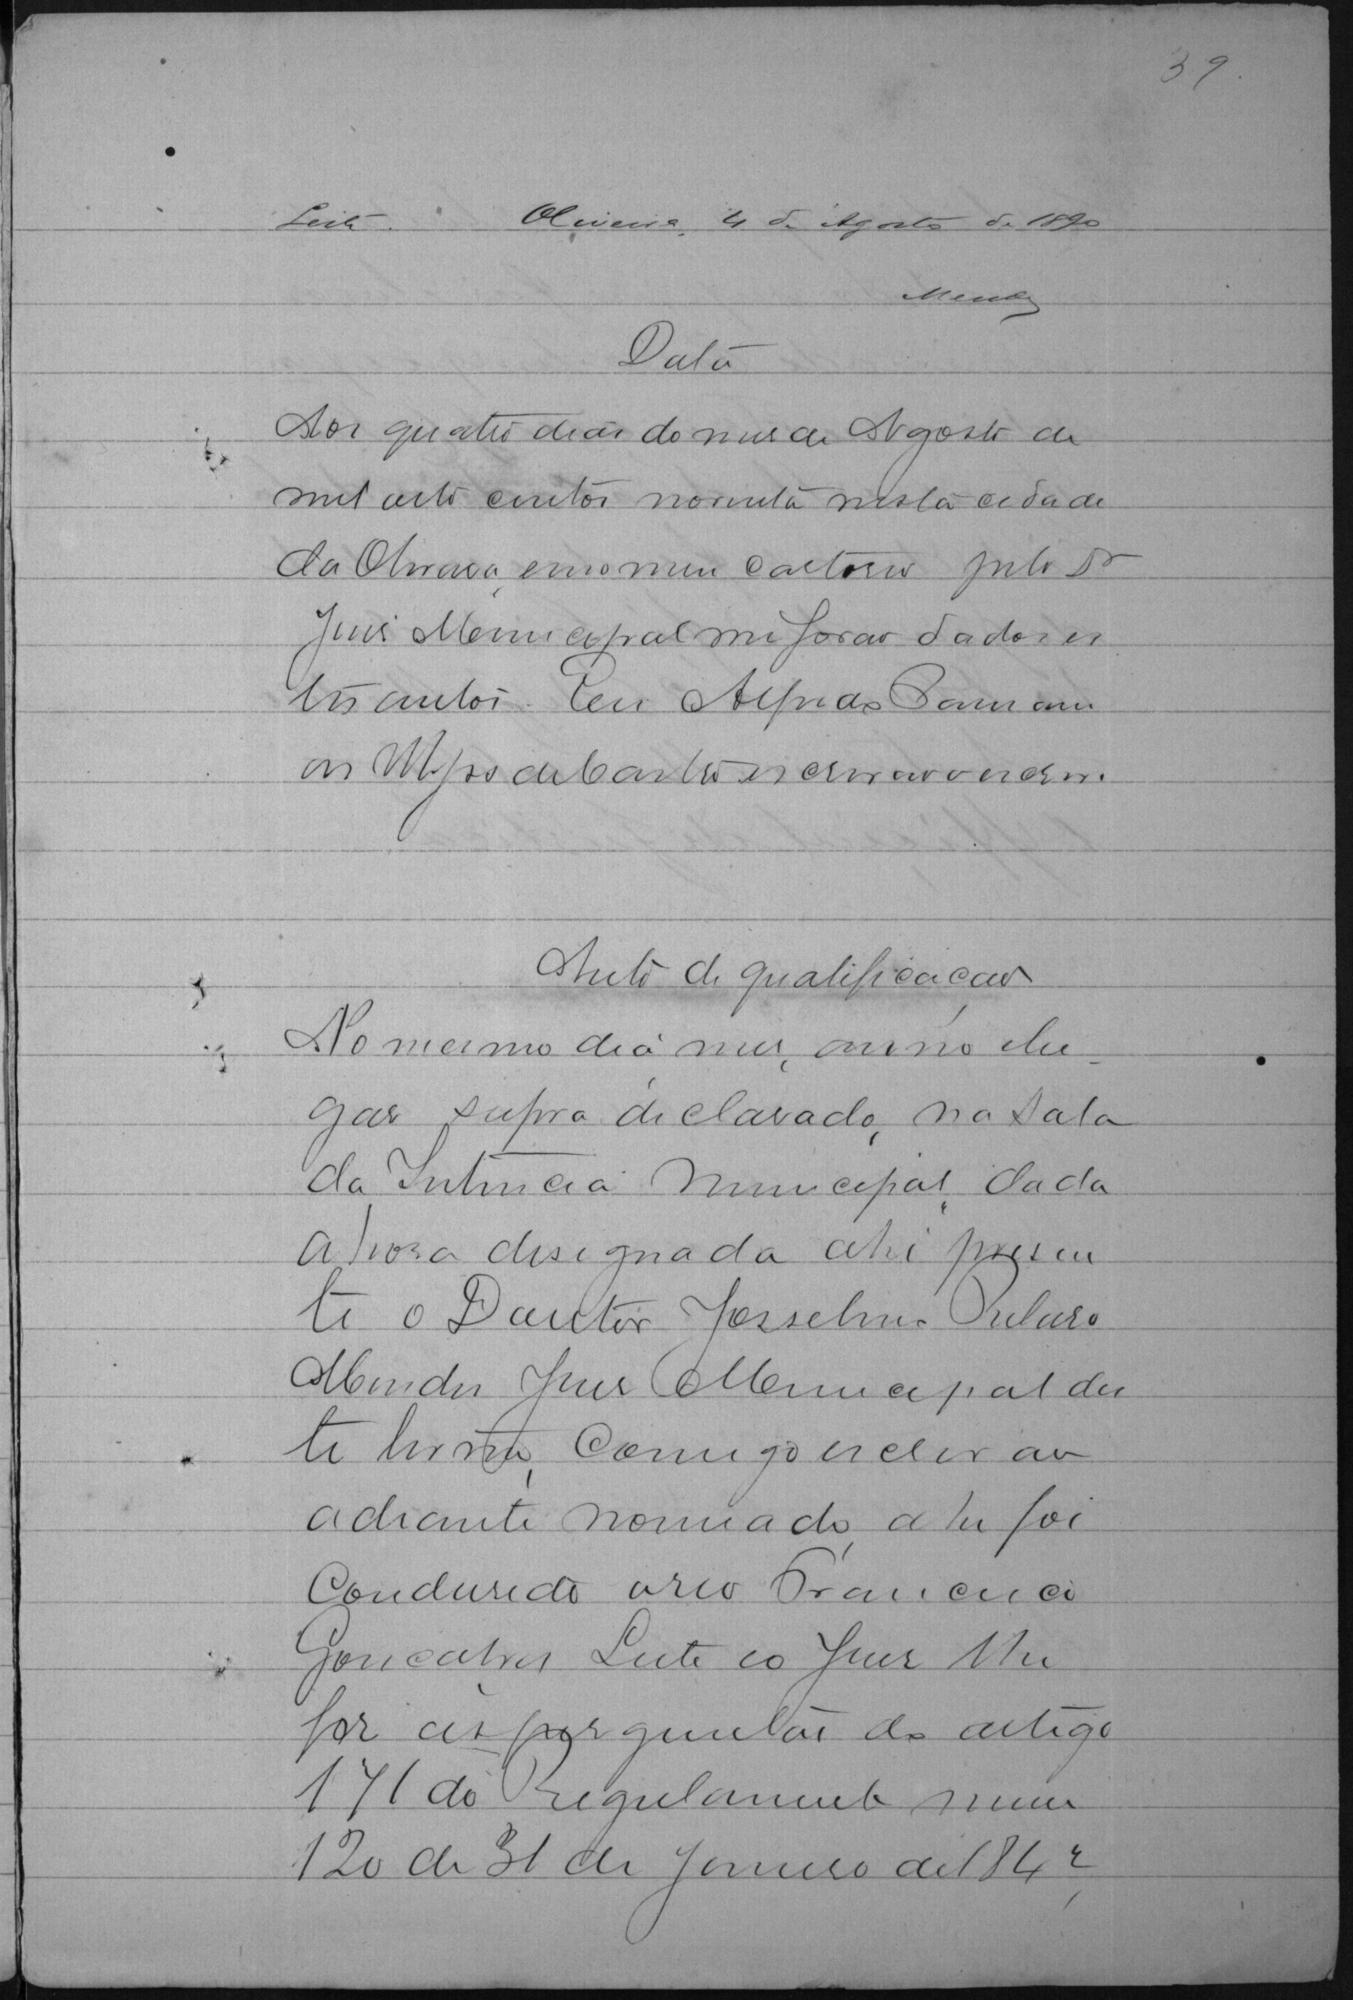 39.
Leite. Oliveira, 4 de Agosto de 1890
Mendes
Data
Aos quatro dias do mes de Agosto de
mil oito centos noventa nesta cidade
da Oliveira, em o meu cartorio pelo Dr
Juis Municipal me forão dados es
tes autos. Eu Alfredo
de Castro escrivão o escrevi.
Auto de qualificação
No mesmo dia mes, anno e lu-
gar supra declarado, na sala
da Intencia municipal, dada
a hora designada ahi presen
te o Doutor Josselino Ribeiro
Mendes Juis Municipal des
te termo, Comigo escrivão
adiante nomeado, ahi foi
Condusido o reo Francisco
Gonçalves Leite e o Juis lhe
fes as perguntas do artigo
171 do Regulamento num
120 de 31 de Janeiro de 1842